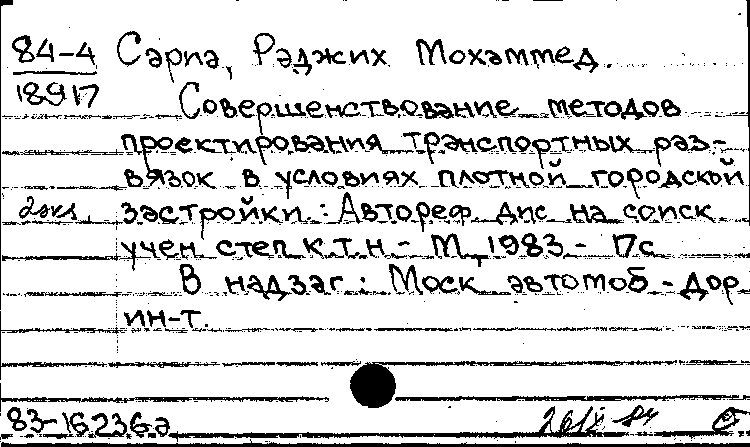 84-4 Сарпа, Раджих Мохаммед.
18917
Совершенствование методов
проектирования транспортных раз-
вязок в условиях плотной городской
2окз. застройки.: Автореф. дис на соиск
учен степ к.т.н. - М, 1983. - 17с
В надзаг: Моск автомоб - дор
ин-т.
83-16236а 26/X 84 С.